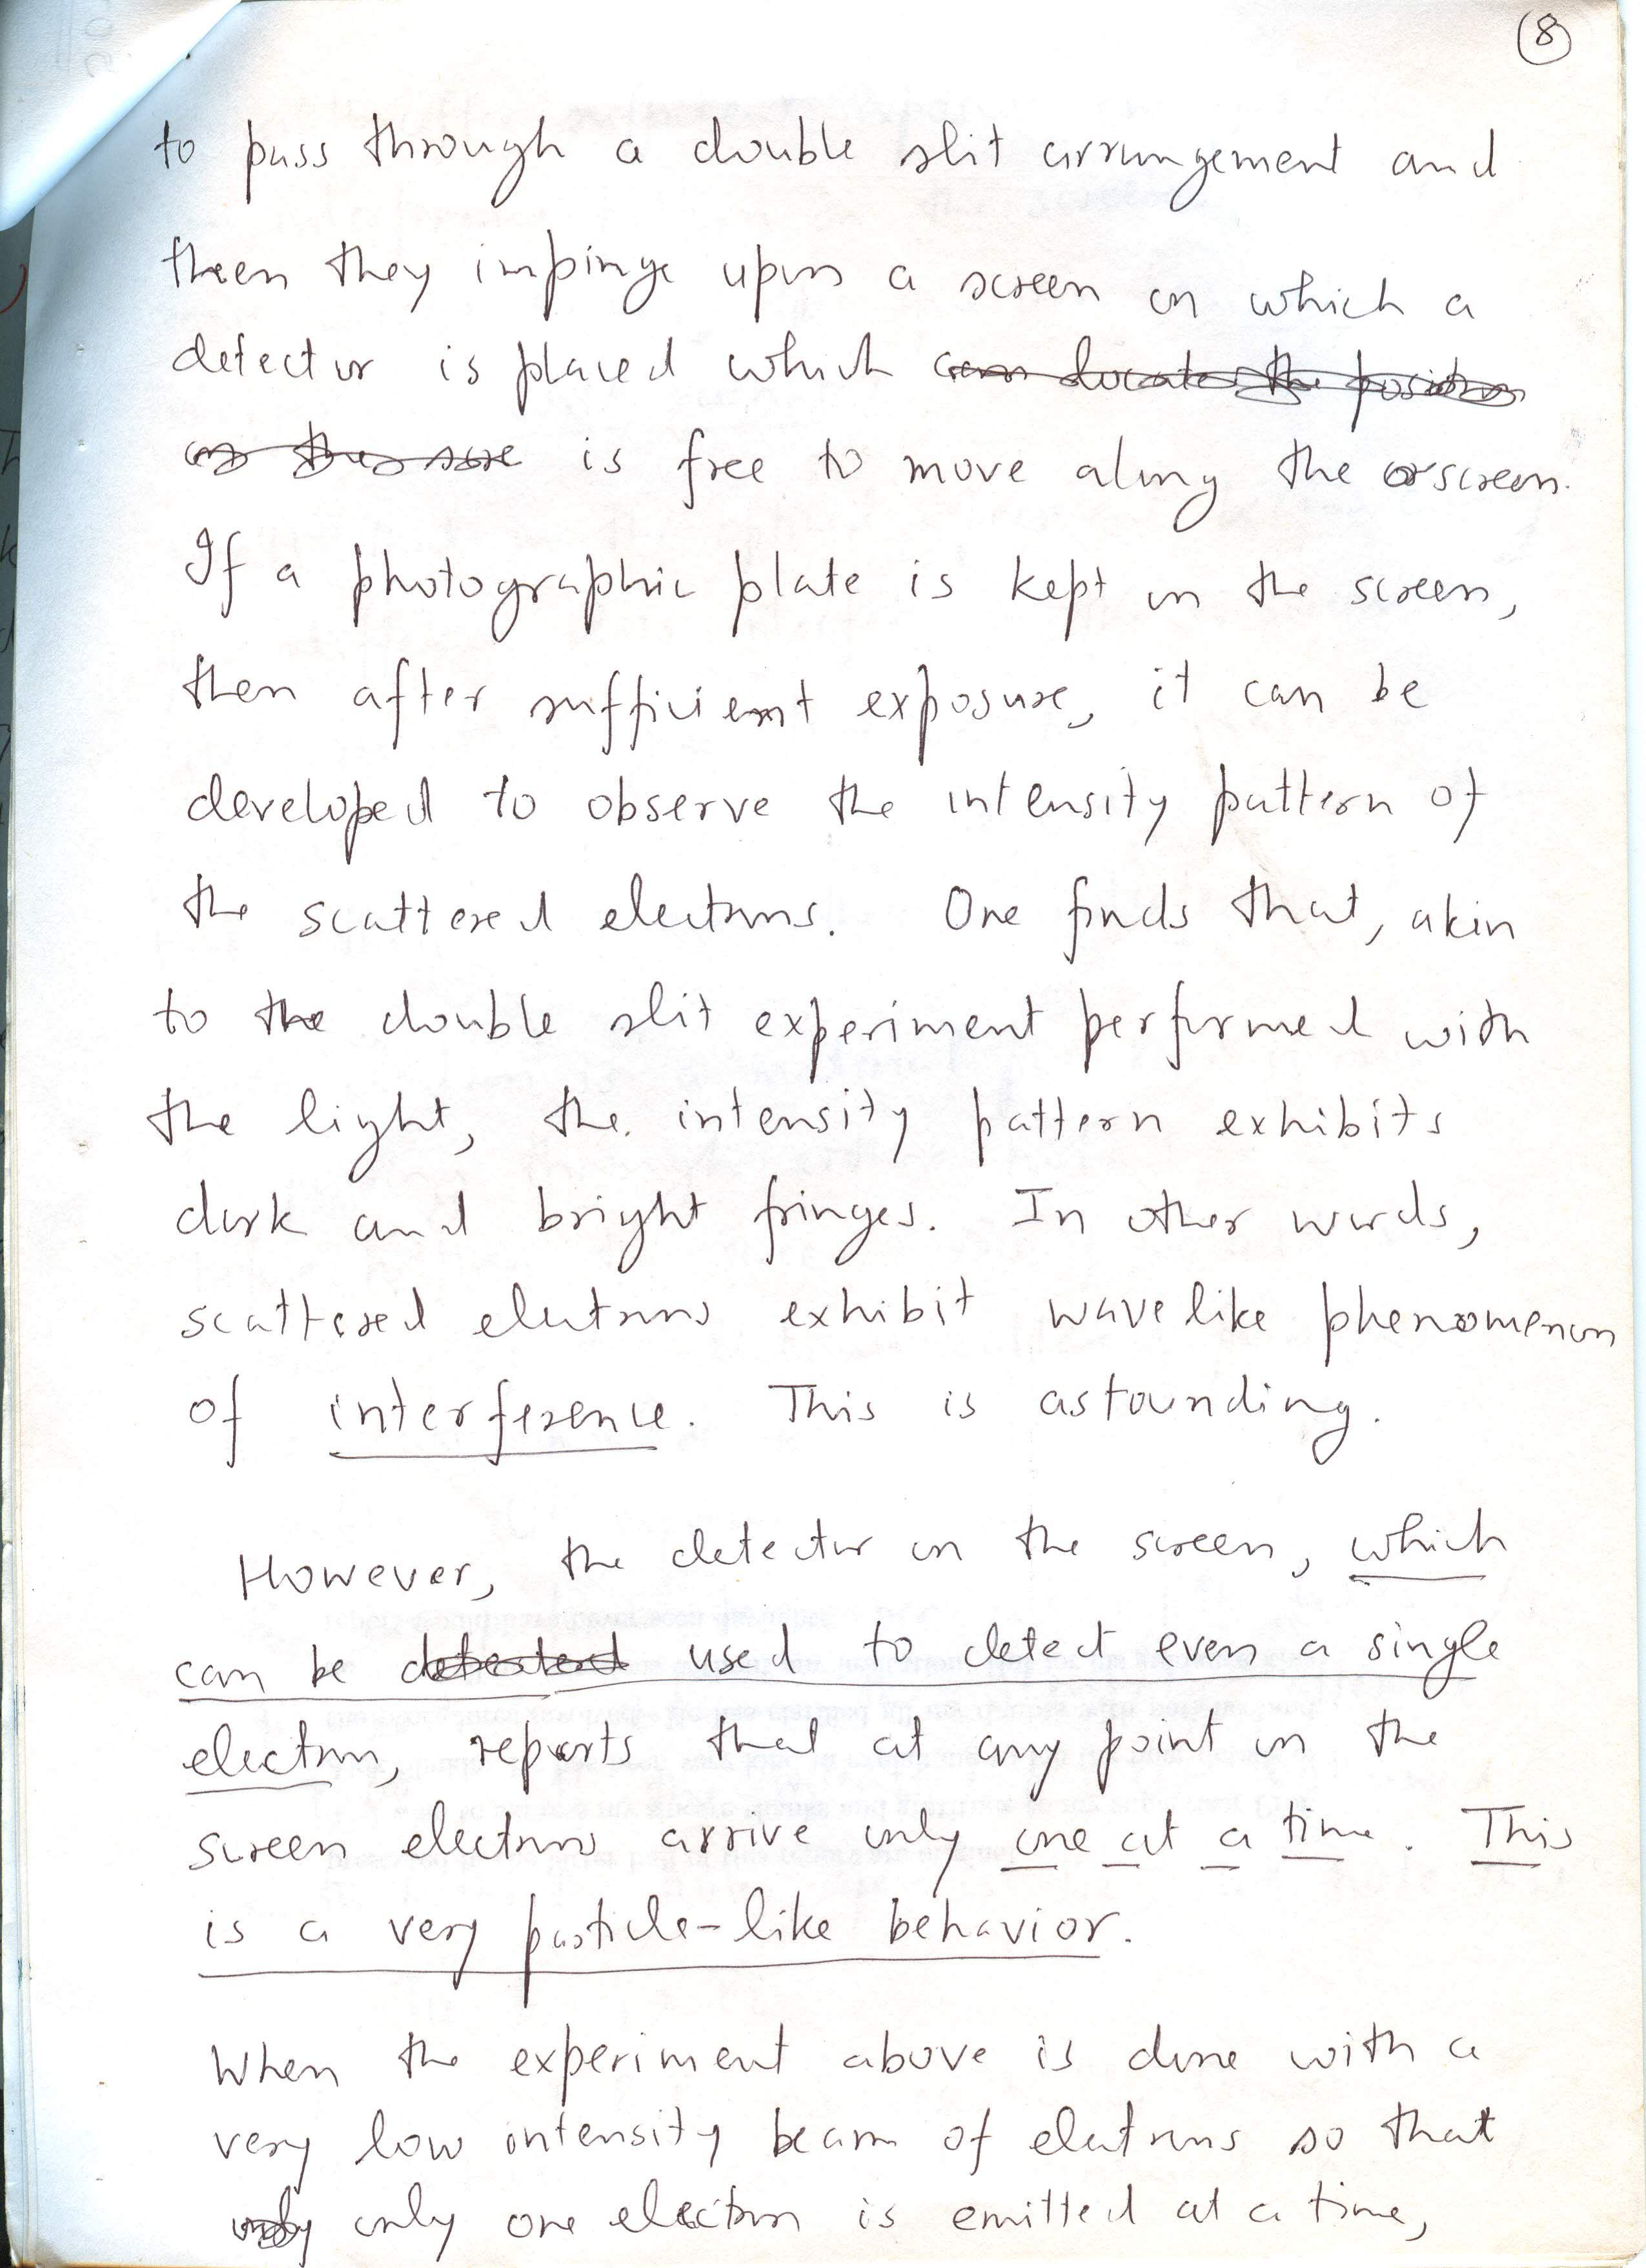 8
to pass through a double slit arrangement and
then they impinge upon a screen on which a
detector is placed which can locate the position
on the scre is free to move along the screen.
If a photographic plate is kept on the screen,
then after sufficient exposure, it can be
developed to observe the intensity pattern of
the scattered electrons. One finds that, akin
to the double slit experiment performed with
the light, the intensity pattern exhibits
dark and bright fringes. In other words,
scattered electrons exhibit wavelike phenomenon
of interference. This is astounding.
However, the detector on the screen, which
can be detected used to detect even a single
electron, reports that at any point on the
screen electrons arrive only one at a time. This
is a very particle-like behavior.
When the experiment above is done with a
very low intensity beam of electrons so that
only only one electron is emitted at a time,